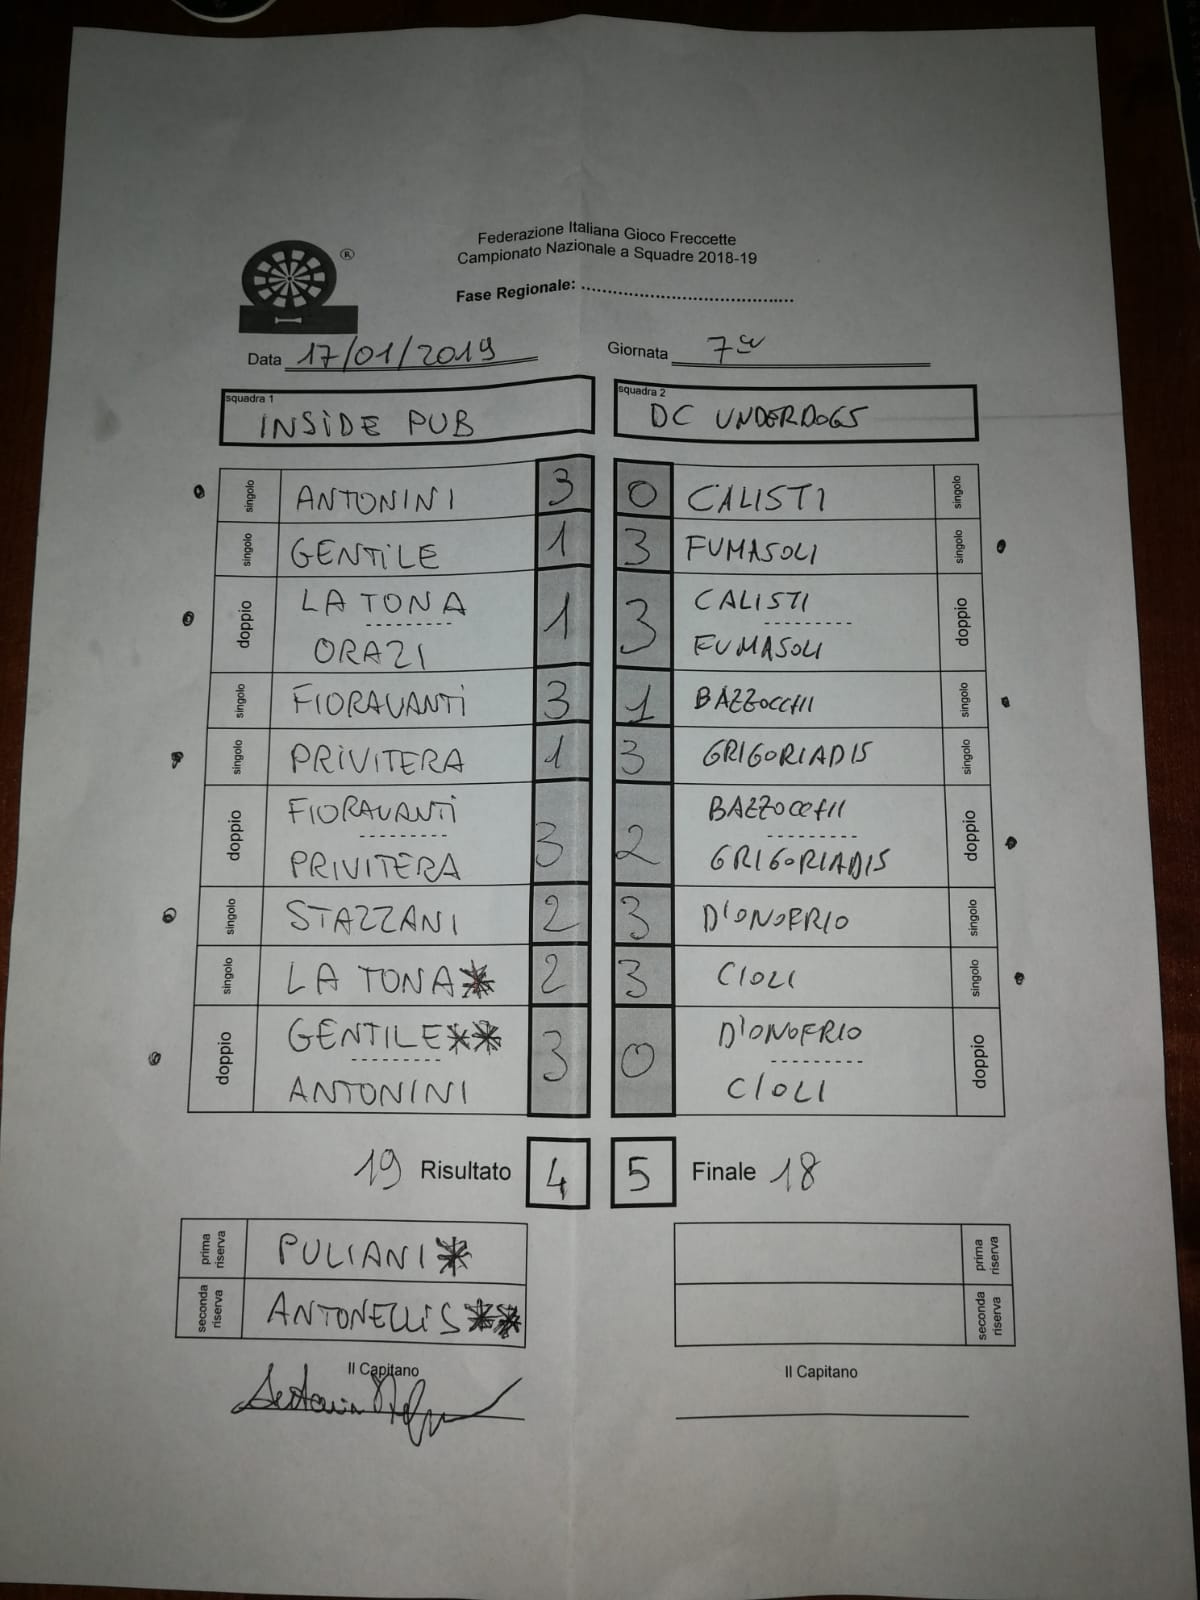 Federazione Italiana Gioco Freccette
Campionato Nazionale a Squadre 2018-19
Fase Regionale: ........................................
®
Data 17/01/2019 Giornata 7ª
squadra 1 squadra 2
INSIDE PUB DC UNDERDOGS
singolo ANTONINI 3 0 CALISTI singolo
singolo GENTILE 1 3 FUMASOLI singolo
doppio LA TONA 1 3 CALISTI doppio
ORAZI FUMASOLI
singolo FIORAVANTI 3 1 BAZZOCCHI singolo
singolo PRIVITERA 1 3 GRIGORIADIS singolo
doppio FIORAVANTI 3 2 BAZZOCCHI doppio
PRIVITERA GRIGORIADIS
singolo STAZZANI 2 3 D'ONOFRIO singolo
singolo LA TONA* 2 3 CIOLI singolo
doppio GENTILE** 3 0 D'ONOFRIO doppio
ANTONINI CIOLI
19 Risultato 4 5 Finale 18
prima riserva PULIANI* prima riserva
seconda riserva ANTONELLIS** seconda riserva
Il Capitano Il Capitano